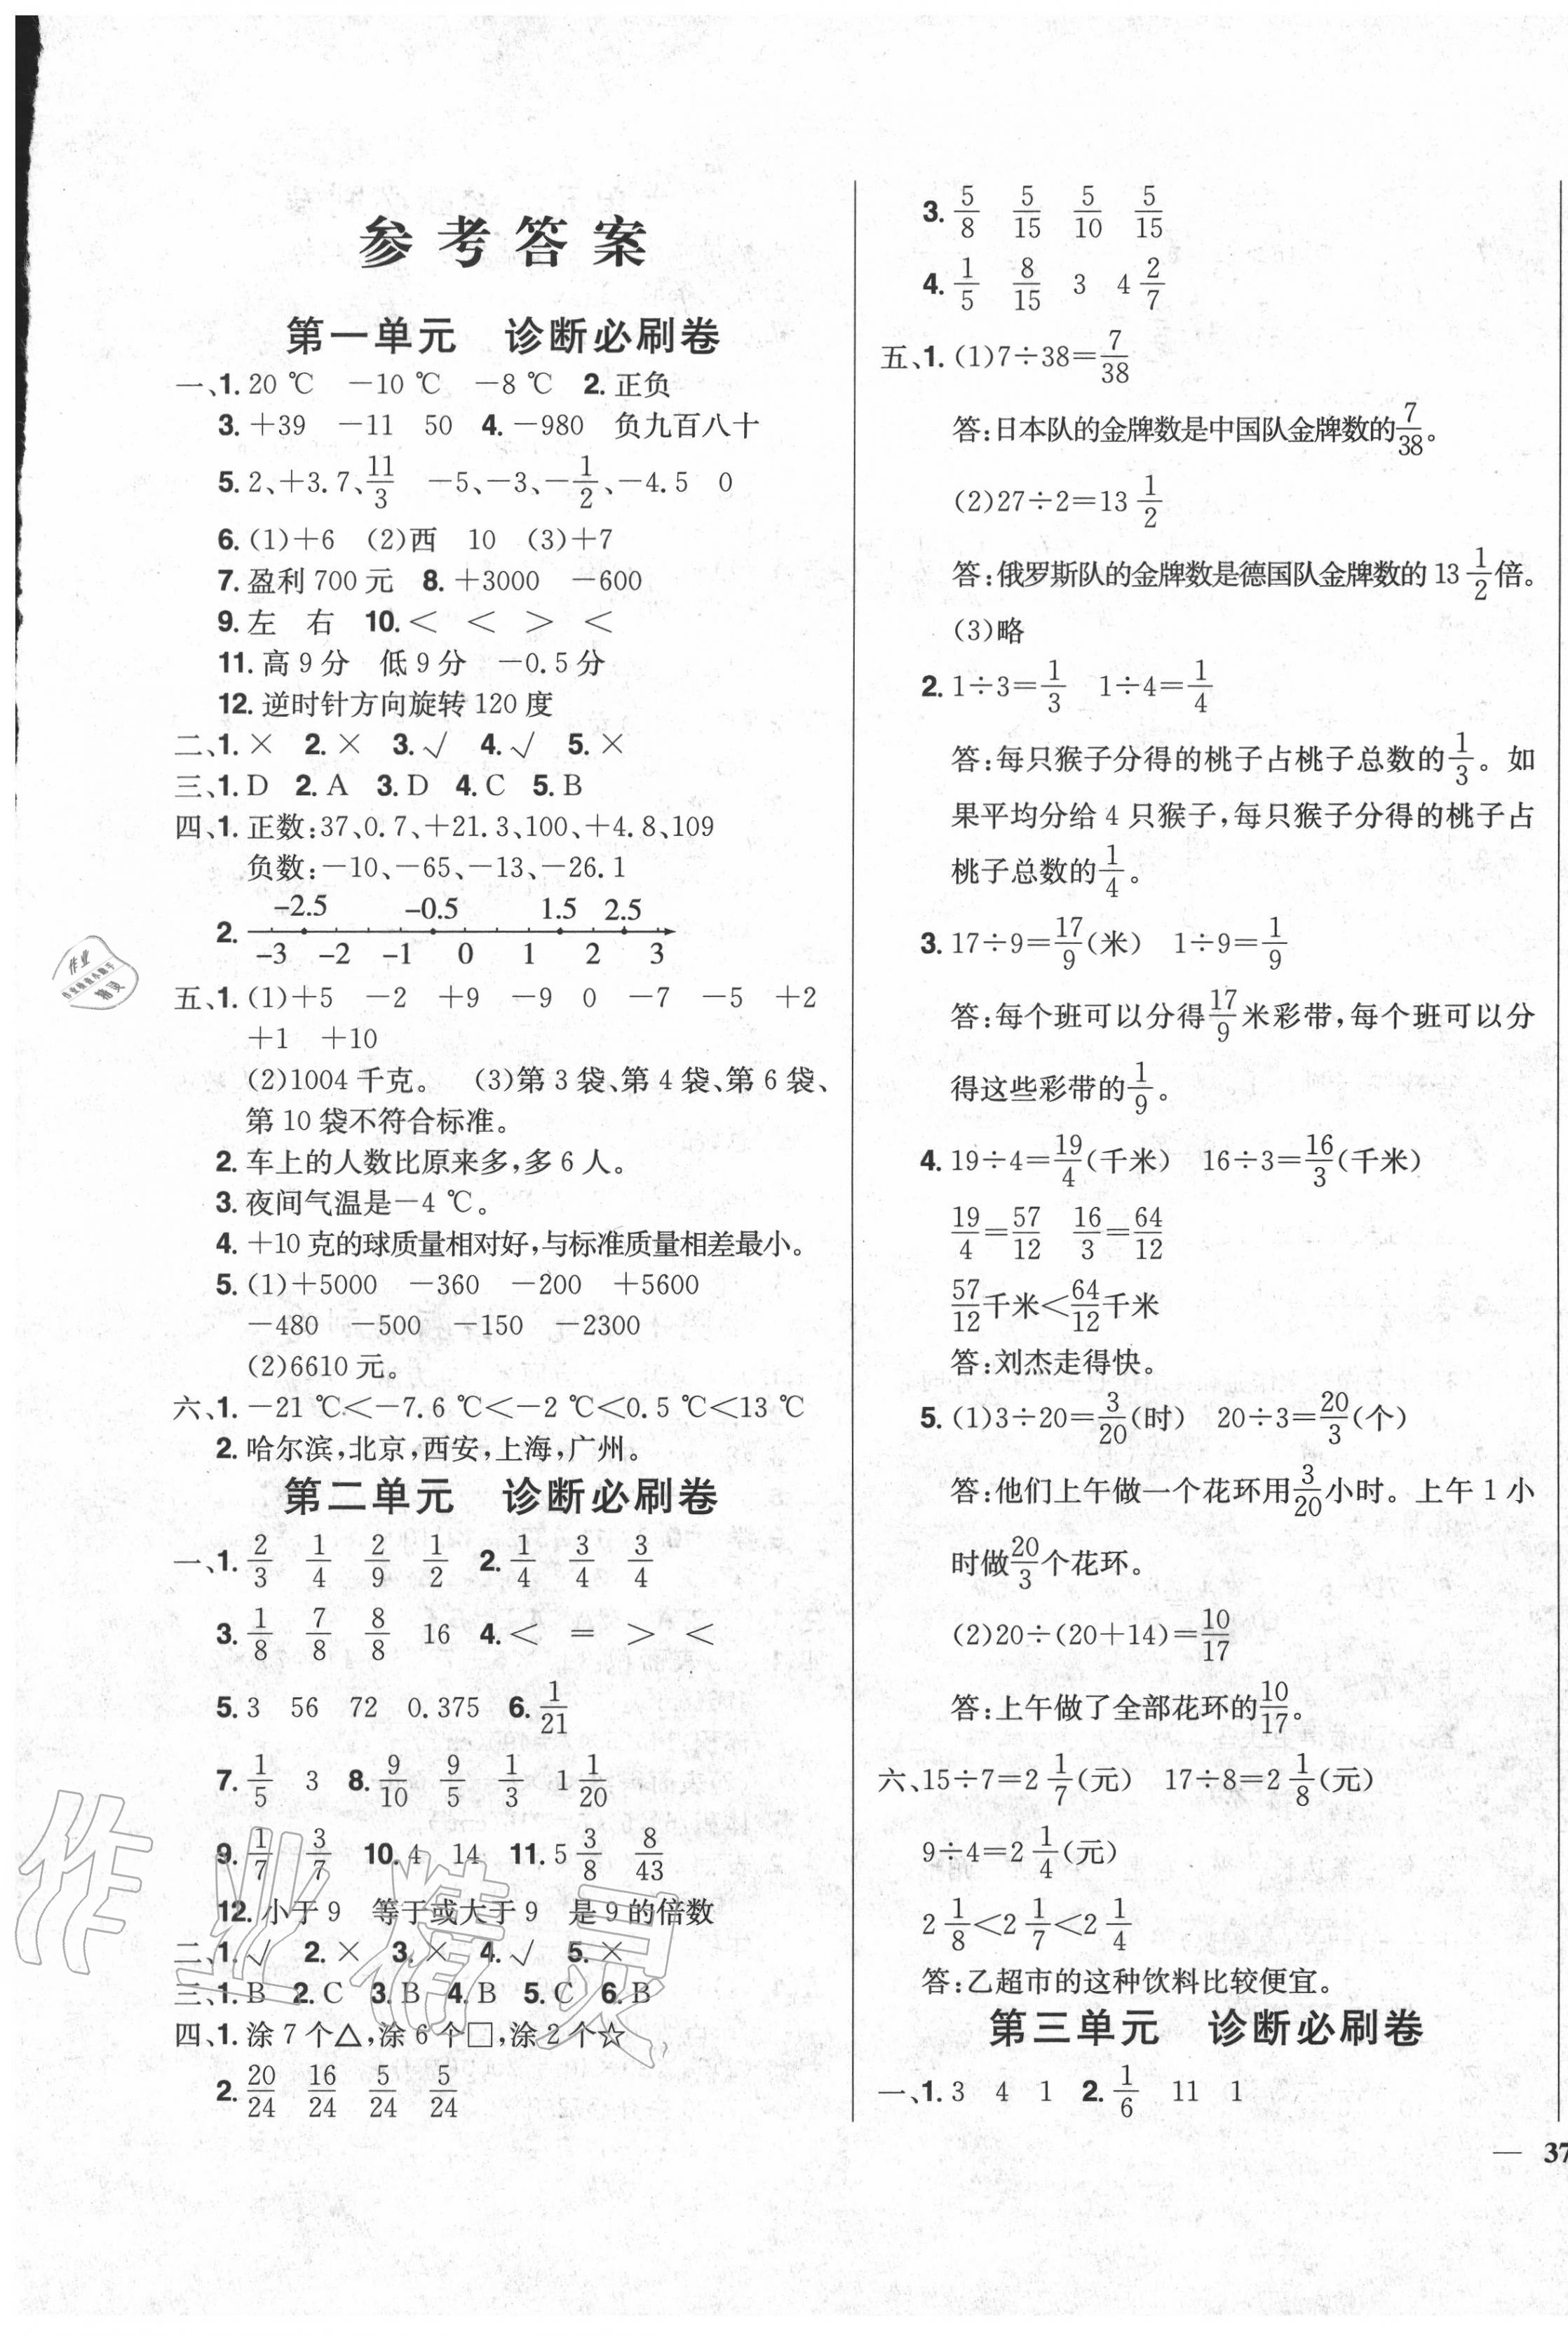 参考答案
第一单元 诊断必刷卷
一、1. 20 ℃ －10 ℃ －8 ℃ 2. 正负
3. ＋39 －11 50 4. －980 负九百八十
5. 2、＋3.7、11/3 －5、－3、－1/2、－4.5 0
6. (1)＋6 (2)西 10 (3)＋7
7. 盈利 700 元 8. ＋3000 －600
9. 左 右 10. ＜ ＜ ＞ ＜
11. 高 9 分 低 9 分 －0.5 分
12. 逆时针方向旋转 120 度
二、1. × 2. × 3. √ 4. √ 5. ×
三、1. D 2. A 3. D 4. C 5. B
四、1. 正数:37、0.7、＋21.3、100、＋4.8、109
负数:－10、－65、－13、－26.1
−2.5 −0.5 1.5 2.5
2. −3 −2 −1 0 1 2 3
五、1. (1)＋5 －2 ＋9 －9 0 －7 －5 ＋2
＋1 ＋10
(2)1004 千克。 (3)第 3 袋、第 4 袋、第 6 袋、
第 10 袋不符合标准。
2. 车上的人数比原来多,多 6 人。
3. 夜间气温是－4 ℃。
4. ＋10 克的球质量相对好,与标准质量相差最小。
5. (1)＋5000 －360 －200 ＋5600
－480 －500 －150 －2300
(2)6610 元。
六、1. －21 ℃＜－7.6 ℃＜－2 ℃＜0.5 ℃＜13 ℃
2. 哈尔滨,北京,西安,上海,广州。
第二单元 诊断必刷卷
一、1. 2/3 1/4 2/9 1/2 2. 1/4 3/4 3/4
3. 1/8 7/8 8/8 16 4. ＜ ＝ ＞ ＜
5. 3 56 72 0.375 6. 1/21
7. 1/5 3 8. 9/10 9/5 1/3 1 1/20
9. 1/7 3/7 10. 4 14 11. 5 3/8 8/43
12. 小于 9 等于或大于 9 是 9 的倍数
二、1. √ 2. × 3. × 4. √ 5. ×
三、1. B 2. C 3. B 4. B 5. C 6. B
四、1. 涂 7 个△,涂 6 个□,涂 2 个☆
2. 20/24 16/24 5/24 5/24
3. 5/8 5/15 5/10 5/15
4. 1/5 8/15 3 4 2/7
五、1. (1)7÷38＝7/38
答:日本队的金牌数是中国队金牌数的7/38。
(2)27÷2＝13 1/2
答:俄罗斯队的金牌数是德国队金牌数的 13 1/2倍。
(3)略
2. 1÷3＝1/3 1÷4＝1/4
答:每只猴子分得的桃子占桃子总数的1/3。如
果平均分给 4 只猴子,每只猴子分得的桃子占
桃子总数的1/4。
3. 17÷9＝17/9(米) 1÷9＝1/9
答:每个班可以分得17/9米彩带,每个班可以分
得这些彩带的1/9。
4. 19÷4＝19/4(千米) 16÷3＝16/3(千米)
19/4＝57/12 16/3＝64/12
57/12千米＜64/12千米
答:刘杰走得快。
5. (1)3÷20＝3/20(时) 20÷3＝20/3(个)
答:他们上午做一个花环用3/20小时。上午 1 小
时做20/3个花环。
(2)20÷(20＋14)＝10/17
答:上午做了全部花环的10/17。
六、15÷7＝2 1/7(元) 17÷8＝2 1/8(元)
9÷4＝2 1/4(元)
2 1/8＜2 1/7＜2 1/4
答:乙超市的这种饮料比较便宜。
第三单元 诊断必刷卷
一、1. 3 4 1 2. 1/6 11 1
— 37
作业精灵
作业
精灵